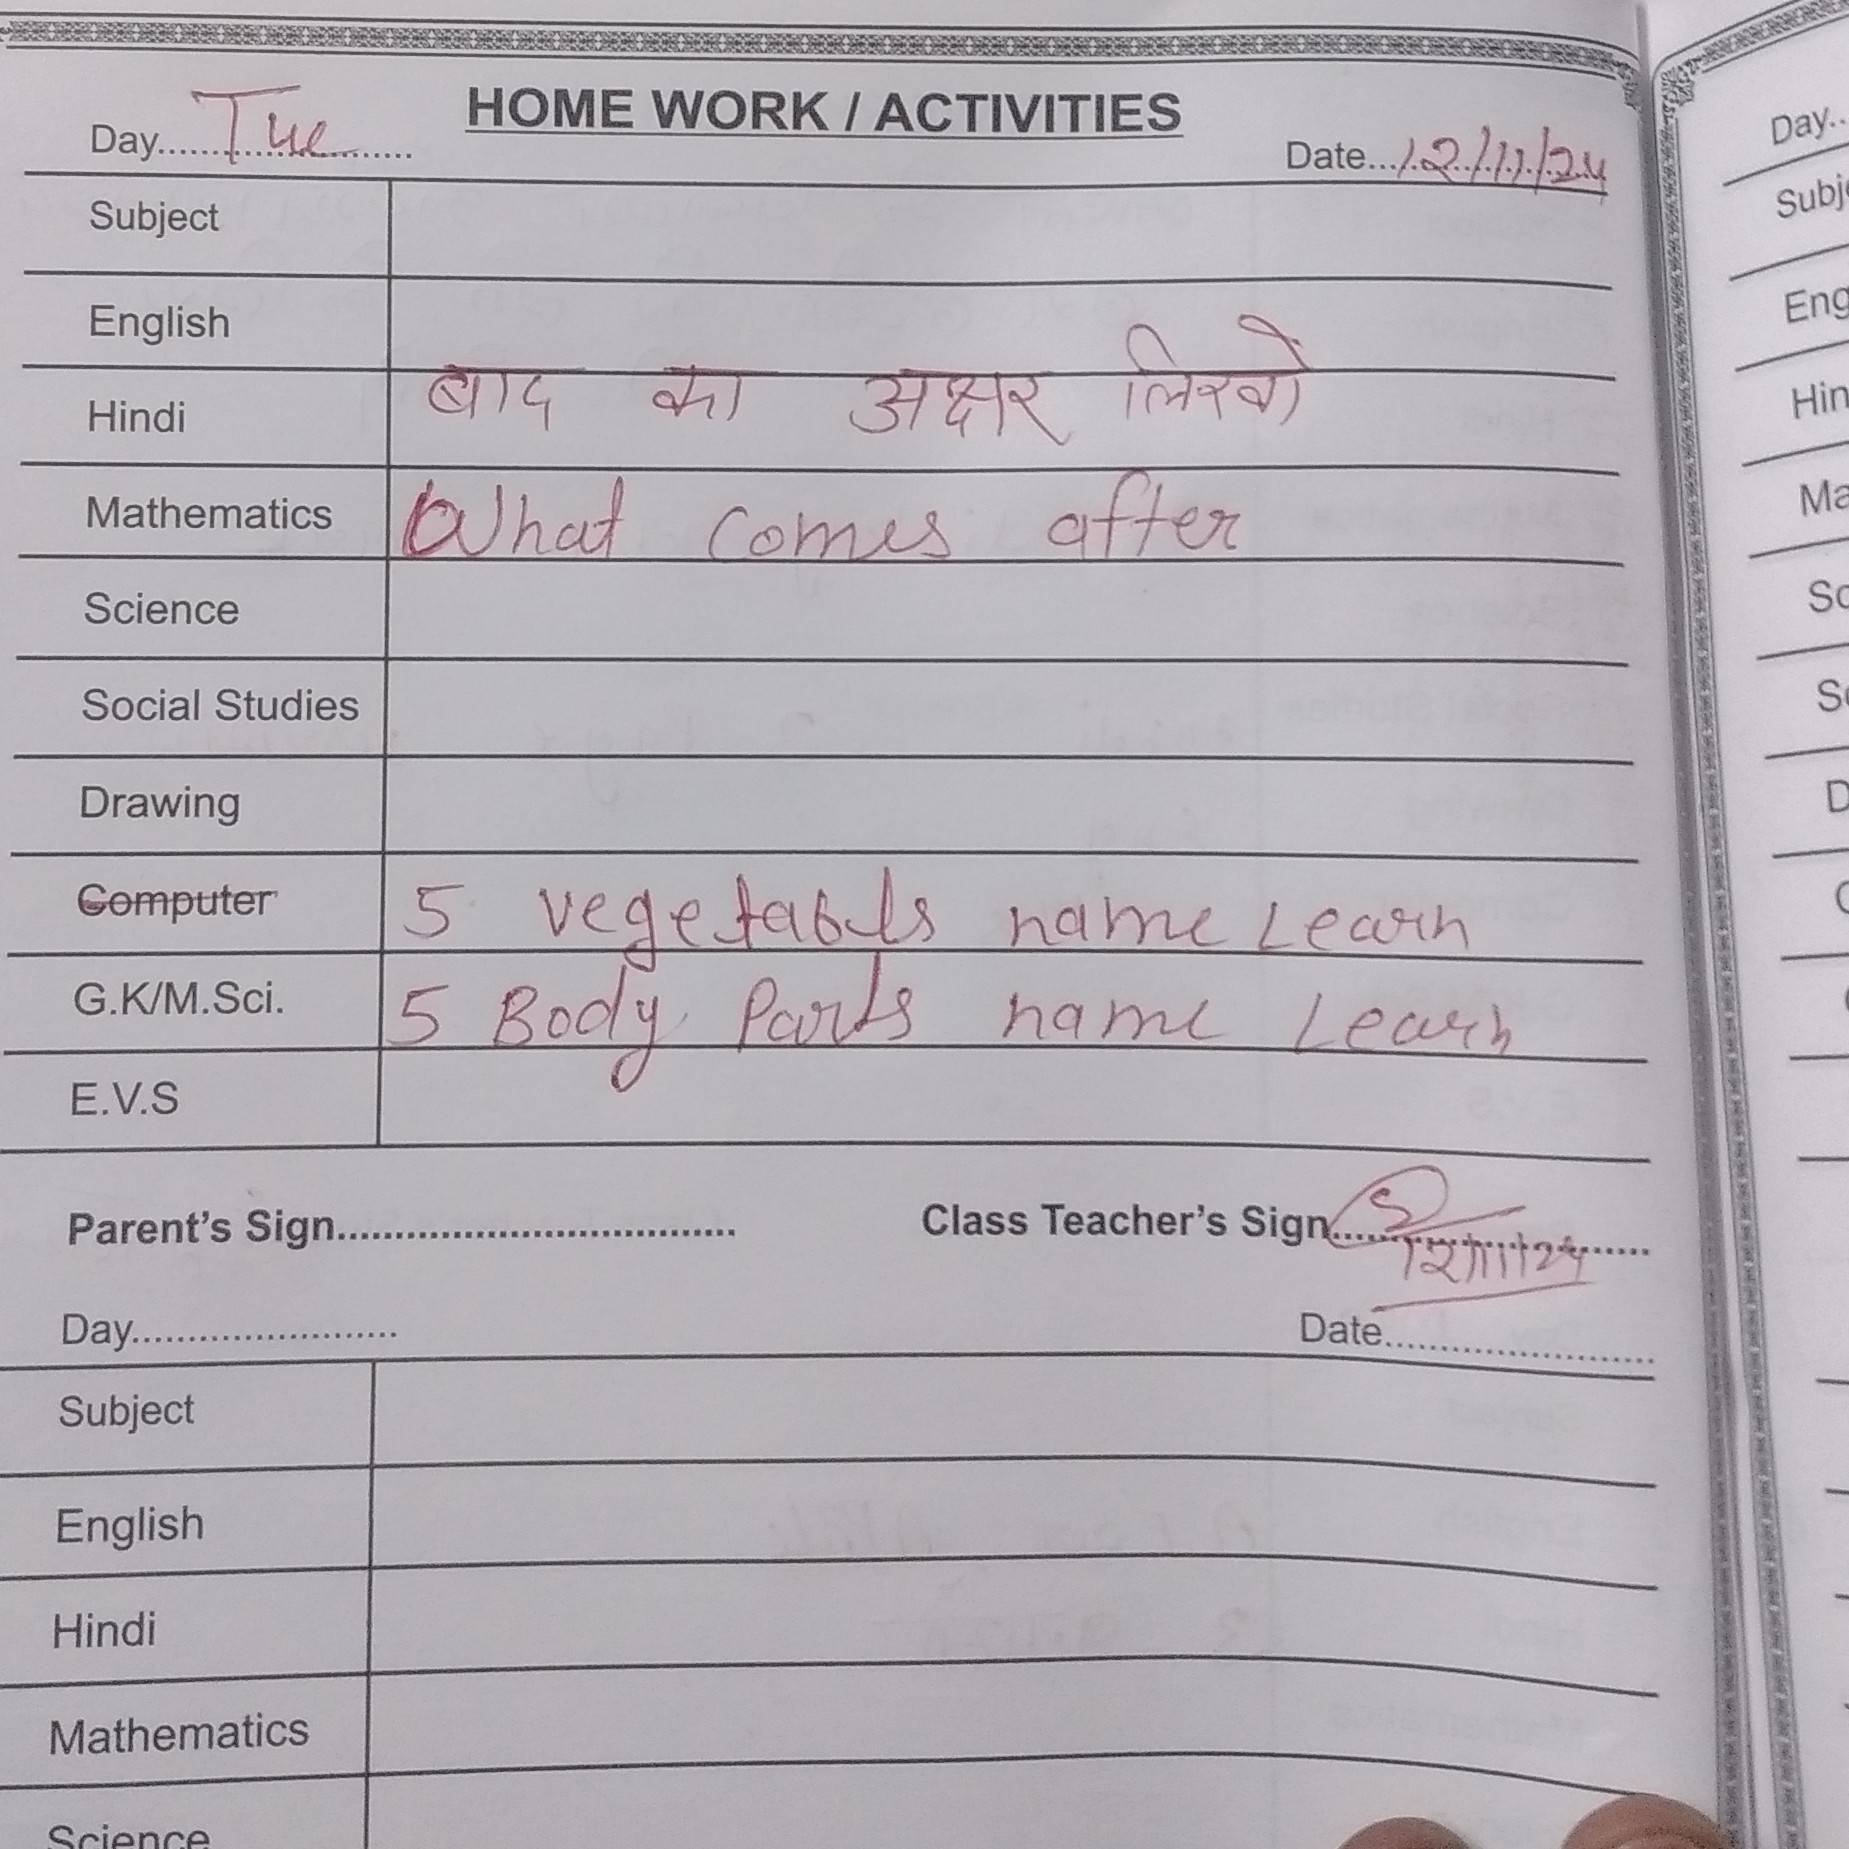 HOME WORK / ACTIVITIES
Day.....Tue.....
Date...12/11/24
Subject
English
Hindi बाद का अक्षर लिखो
Mathematics What comes after
Science
Social Studies
Drawing
Computer 5 vegetabls name Learn
G.K/M.Sci. 5 Body Parts name Learn
E.V.S
Parent's Sign................................... Class Teacher's Sign............
12/11/24
Day........................ Date........................
Subject
English
Hindi
Mathematics
Science
Day..
Subj
Eng
Hin
Ma
Sc
So
D